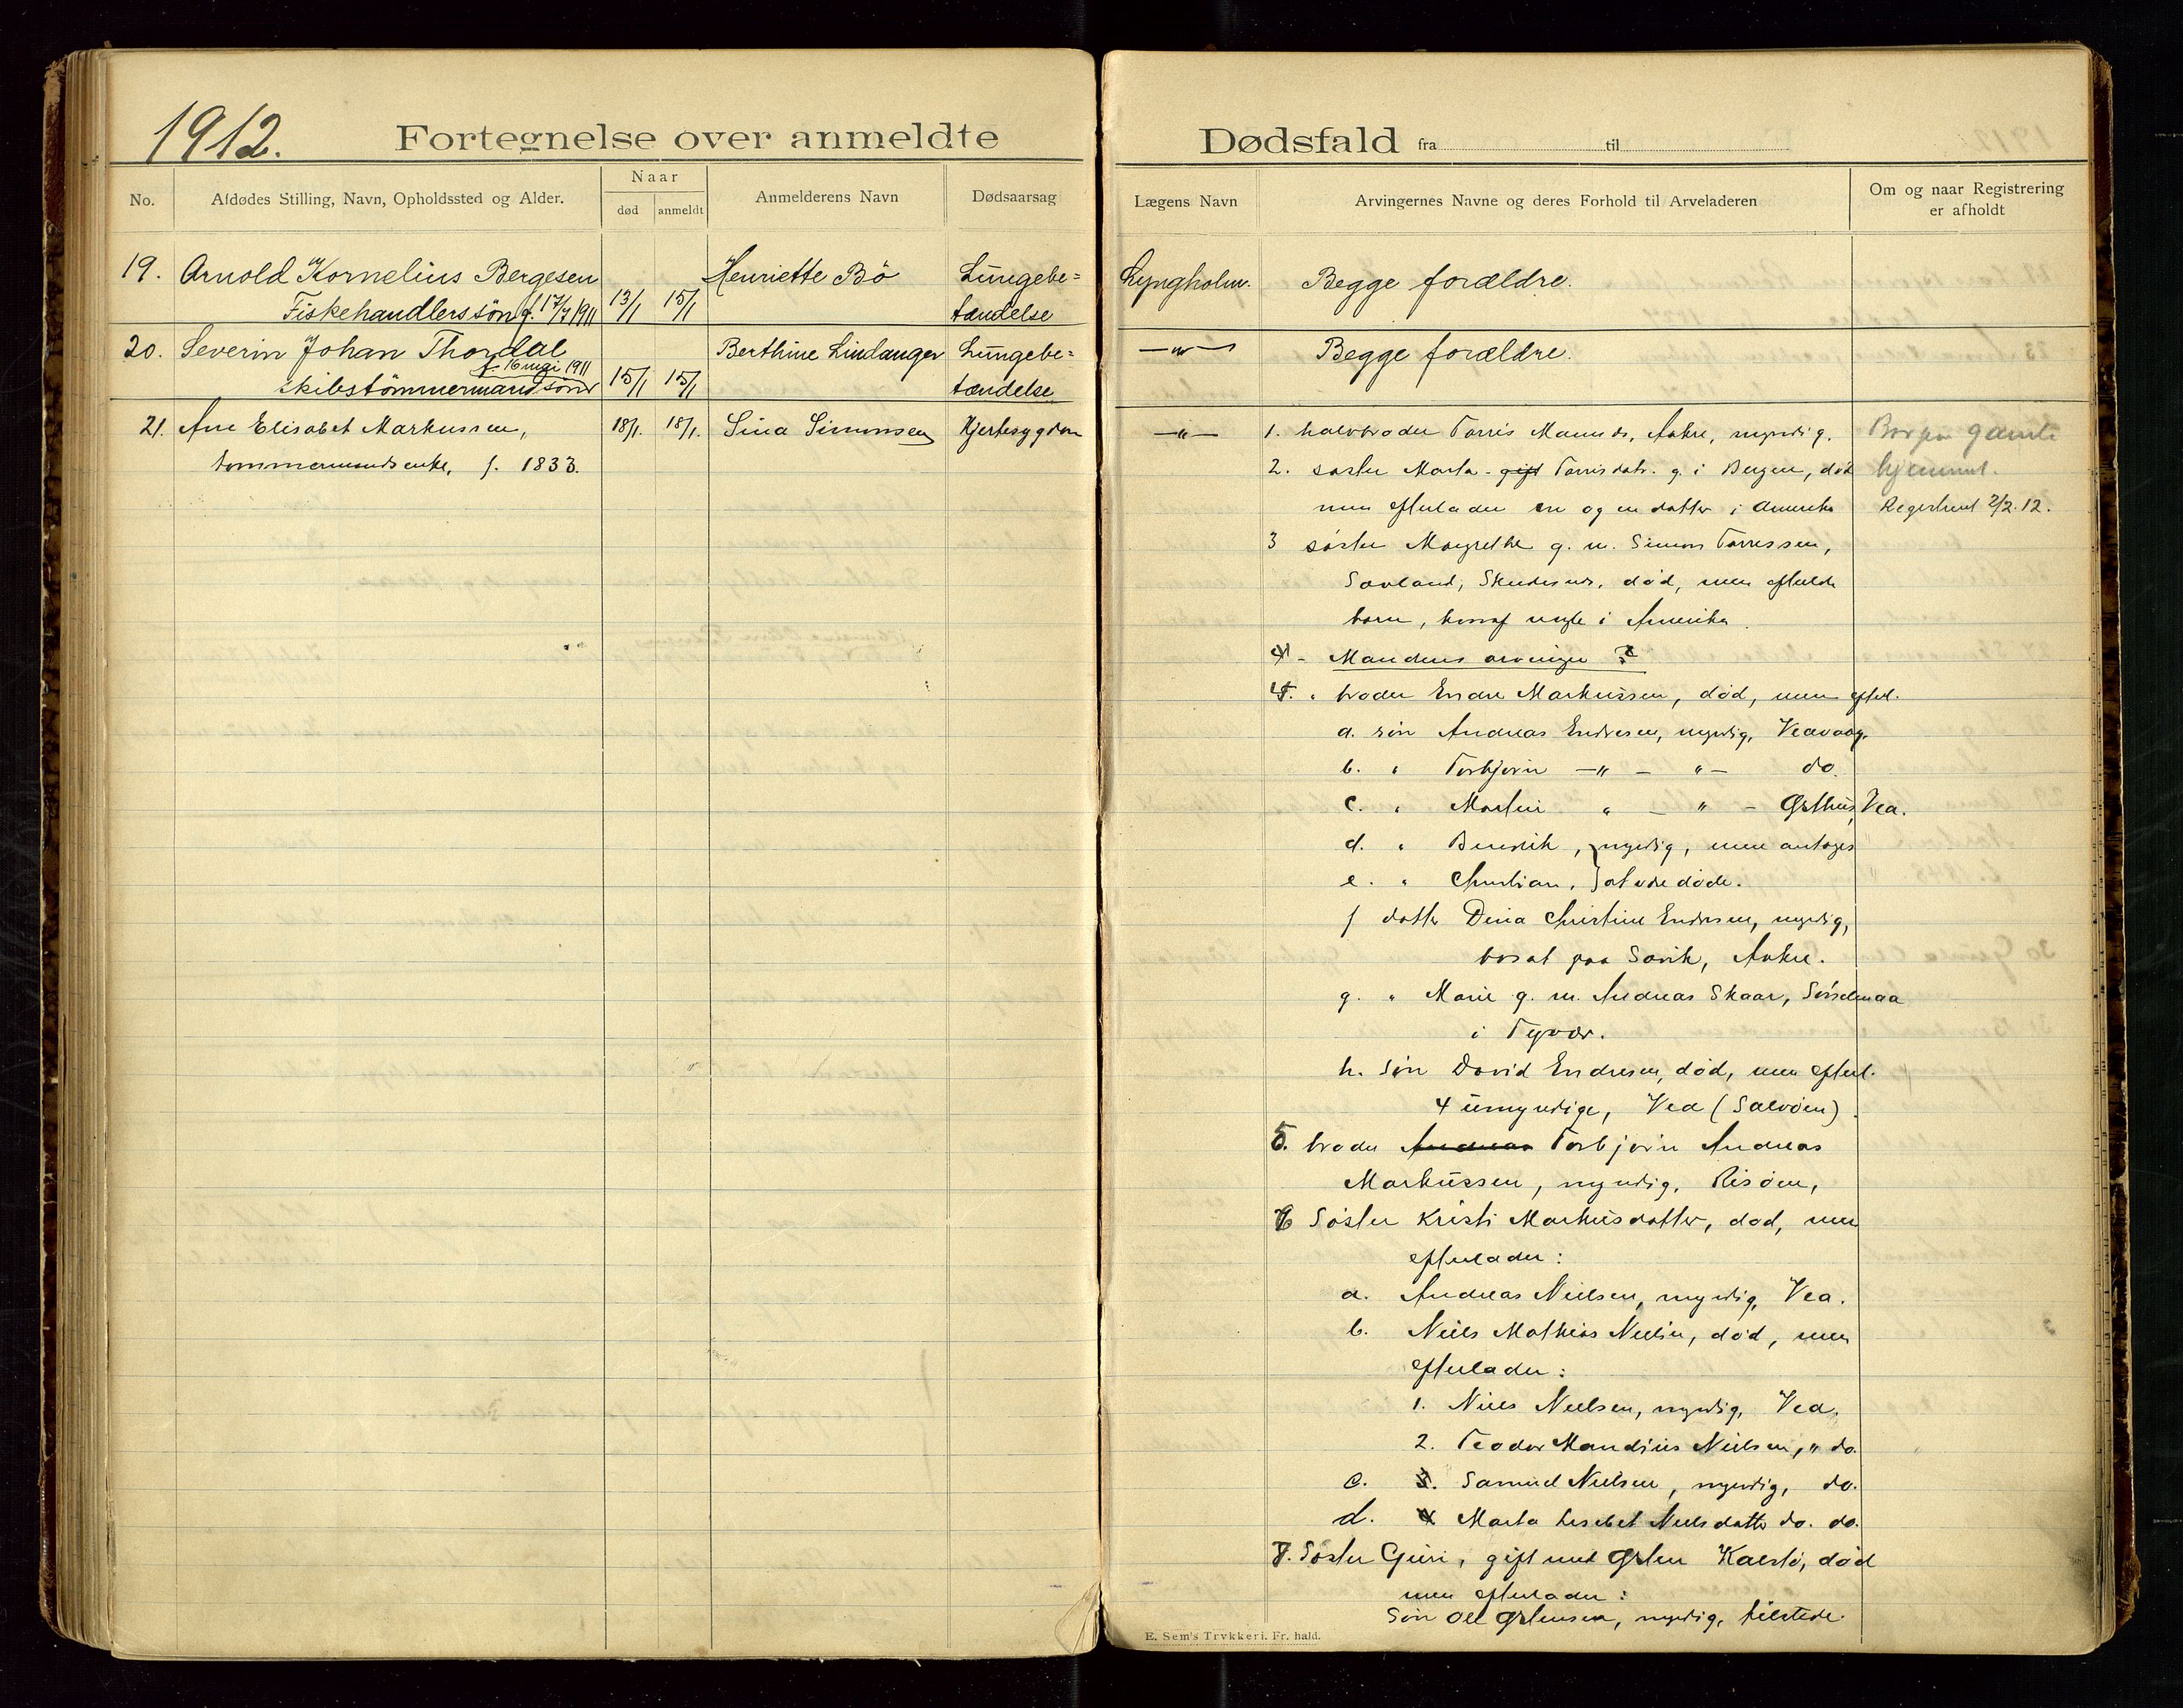 1912.
Fortegnelse over anmeldte
No.
Afdødes Stilling, Navn, Opholdssted og Alder.
Naar
død
anmeldt
Anmelderens Navn
Dødsaarsag
19. Arnold Kornelius Bergesen Henriette Bö Lungebe=
Fiskehandlerssön f. 17/7 1911 13/1 15/1 tændelse
20. Severin Johan Thordal Berthine Lindanger Lungebe=
f. 16 mai 1911
skibstömmermandssön 15/1 15/1 tændelse
21. Ane Elisabet Markussen, 18/1. 18/1. Sina Simonsen Hjertesygdom
tømmermandsenke, f. 1833.
Dødsfald fra til
Lægens Navn
Arvingernes Navne og deres Forhold til Arveladeren
Om og naar Registrering
er afholdt
Lyngholm. Begge forældre.
—"— Begge forældre.
—"— 1. halvbroder Torris Aakre, myndig. Bor paa gamle
2. søster Marta gift Torrisdatr. g. i Bergen, död hjemmet.
men efterlader en og en datter i Amerika Registreret 2/2. 12.
3 søster Margrethe g. m. Simon Torressen,
Sovland, Skudesnes, død, men
børn, hvoraf nogle i Amerika.
4 - Mandens arvinger ?
4. " broder Endre Markussen, død, men efterl.
a. søn Andreas Endresen, myndig, Veavaag.
b. " Torbjørn —"— "— do.
c. " Martin " — " — Østhus, Vea.
d. " Benedik, } myndig, men antages
e. " Christian, } at være døde.
f datter Dina Christine Endresen, myndig,
bosat paa Søvik, Aakre.
g. " Marie g. m. Andreas Skaar,
i Tysvær.
h. Søn David Endresen, død, men efterl.
4 umyndige, Vea (Salvøen).
5. broder Andreas Torbjørn Andreas
Markussen, myndig, Risøen,
6 Søster Kristi Markusdatter, død, men
efterlader:
a. Andreas Nielsen, myndig, Vea.
b. Niels Mathias Nielsen, död, men
efterlader:
1. Niels Nielsen, myndig, Vea.
2. Teodor Mandius Nielsen, " do.
c. 3. Samuel Nielsen, myndig, do.
d. 4 Marta Lisebet Nielsdatter do. do.
7. Søster Guri, gift med Østen Kalstö, död
men efterlader:
Søn Ole Østensen, myndig, tilstede.
E. Sem's Trykkeri. Fr.hald.